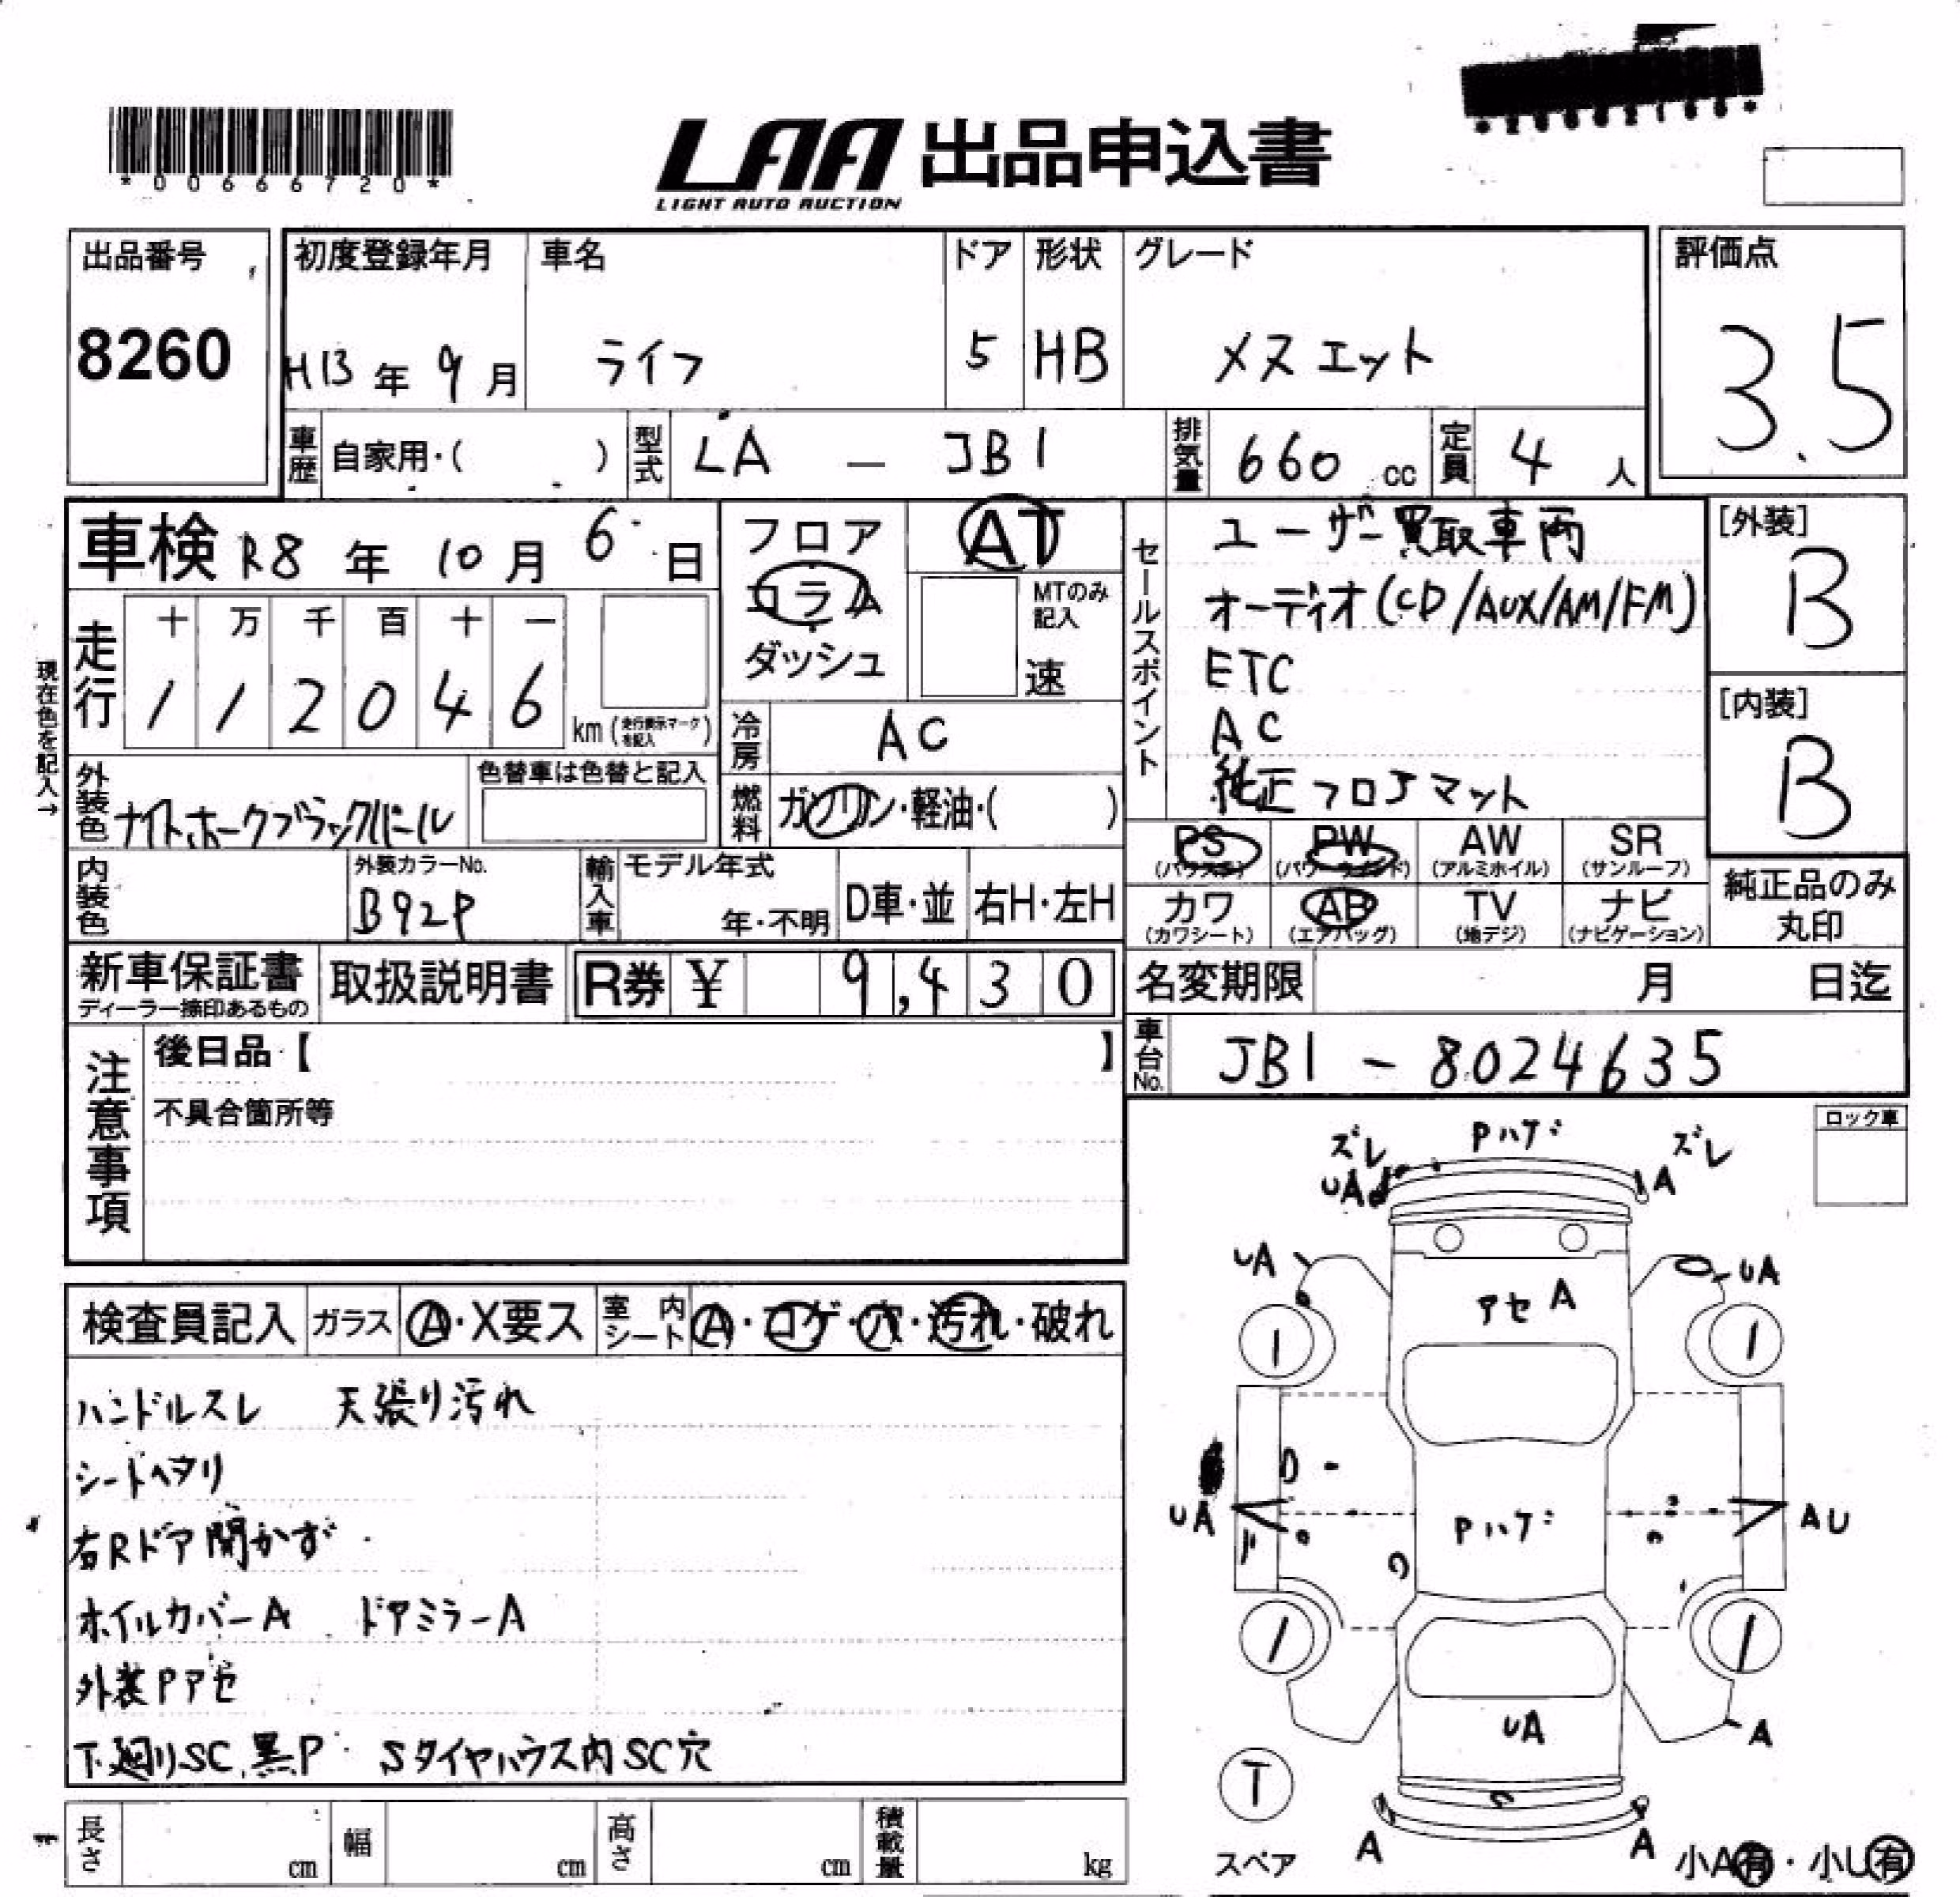 *00666720*
LAA 出品申込書
LIGHT AUTO AUCTION
出品番号 初度登録年月 車名 ドア 形状 グレード 評価点
8260 H13年 9月 ライフ 5 HB メヌエット 3.5
車歴 自家用・( ) 型式 LA - JB1 排気量 660 cc 定員 4 人
車検 R8年 10月 6日 フロア コラム ダッシュ AT
MTのみ記入 速
セールスポイント
ユーザー買取車両
オーディオ(CD/AUX/AM/FM)
ETC
AC
純正フロアマット
[外装] B
[内装] B
現在色を記入→
走行 十 万 千 百 十 一
1 1 2 0 4 6 km (走行表示マークを記入)
冷房 AC
外装色 ナイトホークブラックパール 色替車は色替と記入
燃料 ガソリン・軽油・( )
PS (パワステ) PW (パワーウインド) AW (アルミホイル) SR (サンルーフ)
カワ (カワシート) AB (エアバッグ) TV (地デジ) ナビ (ナビゲーション)
純正品のみ丸印
内装色 外装カラーNo. B92P 輸入車 モデル年式 年・不明 D車・並 右H・左H
新車保証書 ディーラー捺印あるもの 取扱説明書 R券 ¥ 9,430
名変期限 月 日迄
車台No. JB1 - 8024635
注意事項
後日品【 】
不具合箇所等
ロック車
検査員記入 ガラス A・X要ス 室内シート A・コゲ・穴・汚れ・破れ
ハンドルスレ 天張り汚れ
シートヘタリ
右Rドア開かず
ホイルカバーA ドアミラーA
外装Pアセ
下廻りSC,黒P Sタイヤハウス内SC穴
ズレ Pハゲ ズレ
UA A
UA UA
アセ A
1 1
D
UA Pハゲ AU
1 1
UA
A
T
スペア A A
小A有・小U有
長さ cm 幅 cm 高さ cm 積載量 kg